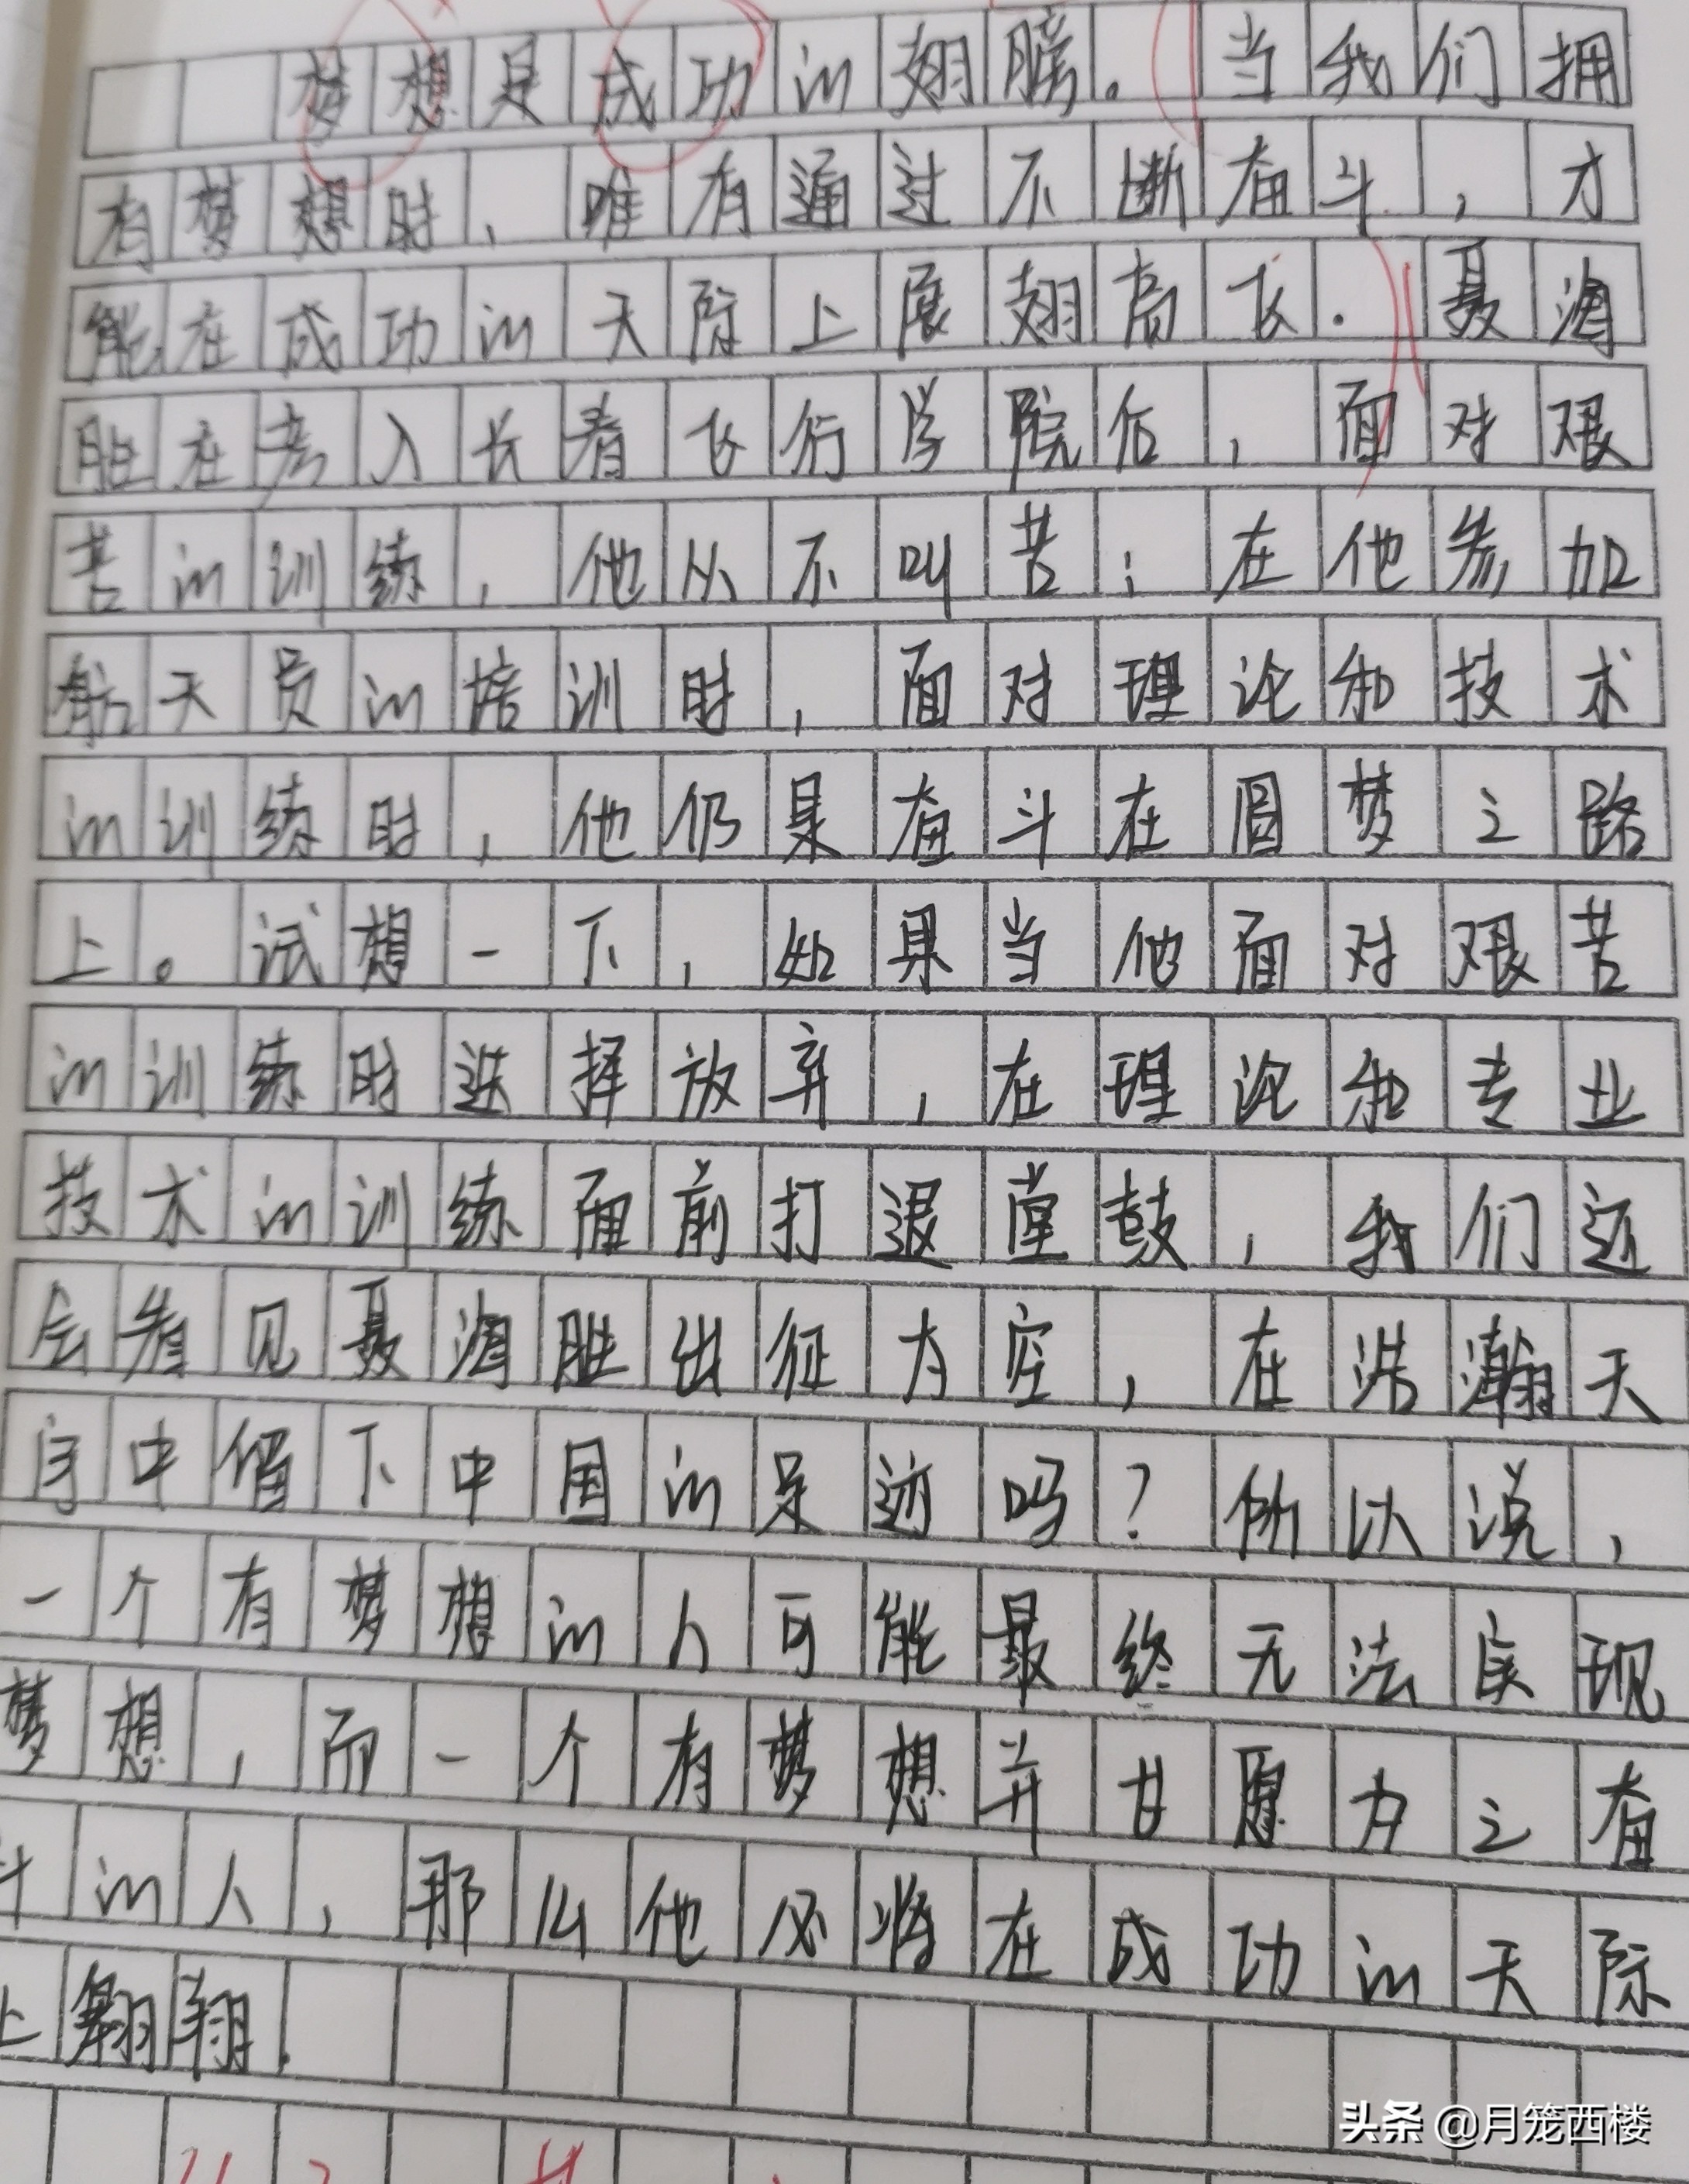 梦想是成功的翅膀。当我们拥
有梦想时，唯有通过不断奋斗，才
能在成功的天际上展翅高飞．聂海
胜在考入长春飞行学院后，面对艰
苦的训练，他从不叫苦；在他参加
航天员的培训时，面对理论和技术
的训练时，他仍是奋斗在圆梦之路
上。试想一下，如果当他面对艰苦
的训练时选择放弃，在理论和专业
技术的训练面前打退堂鼓，我们还
会看见聂海胜出征太空，在浩瀚天
宇中留下中国的足迹吗？所以说，
一个有梦想的人可能最终无法实现
梦想，而一个有梦想并甘愿为之奋
斗的人，那么他必将在成功的天际
上翱翔．
头条 @月笼西楼